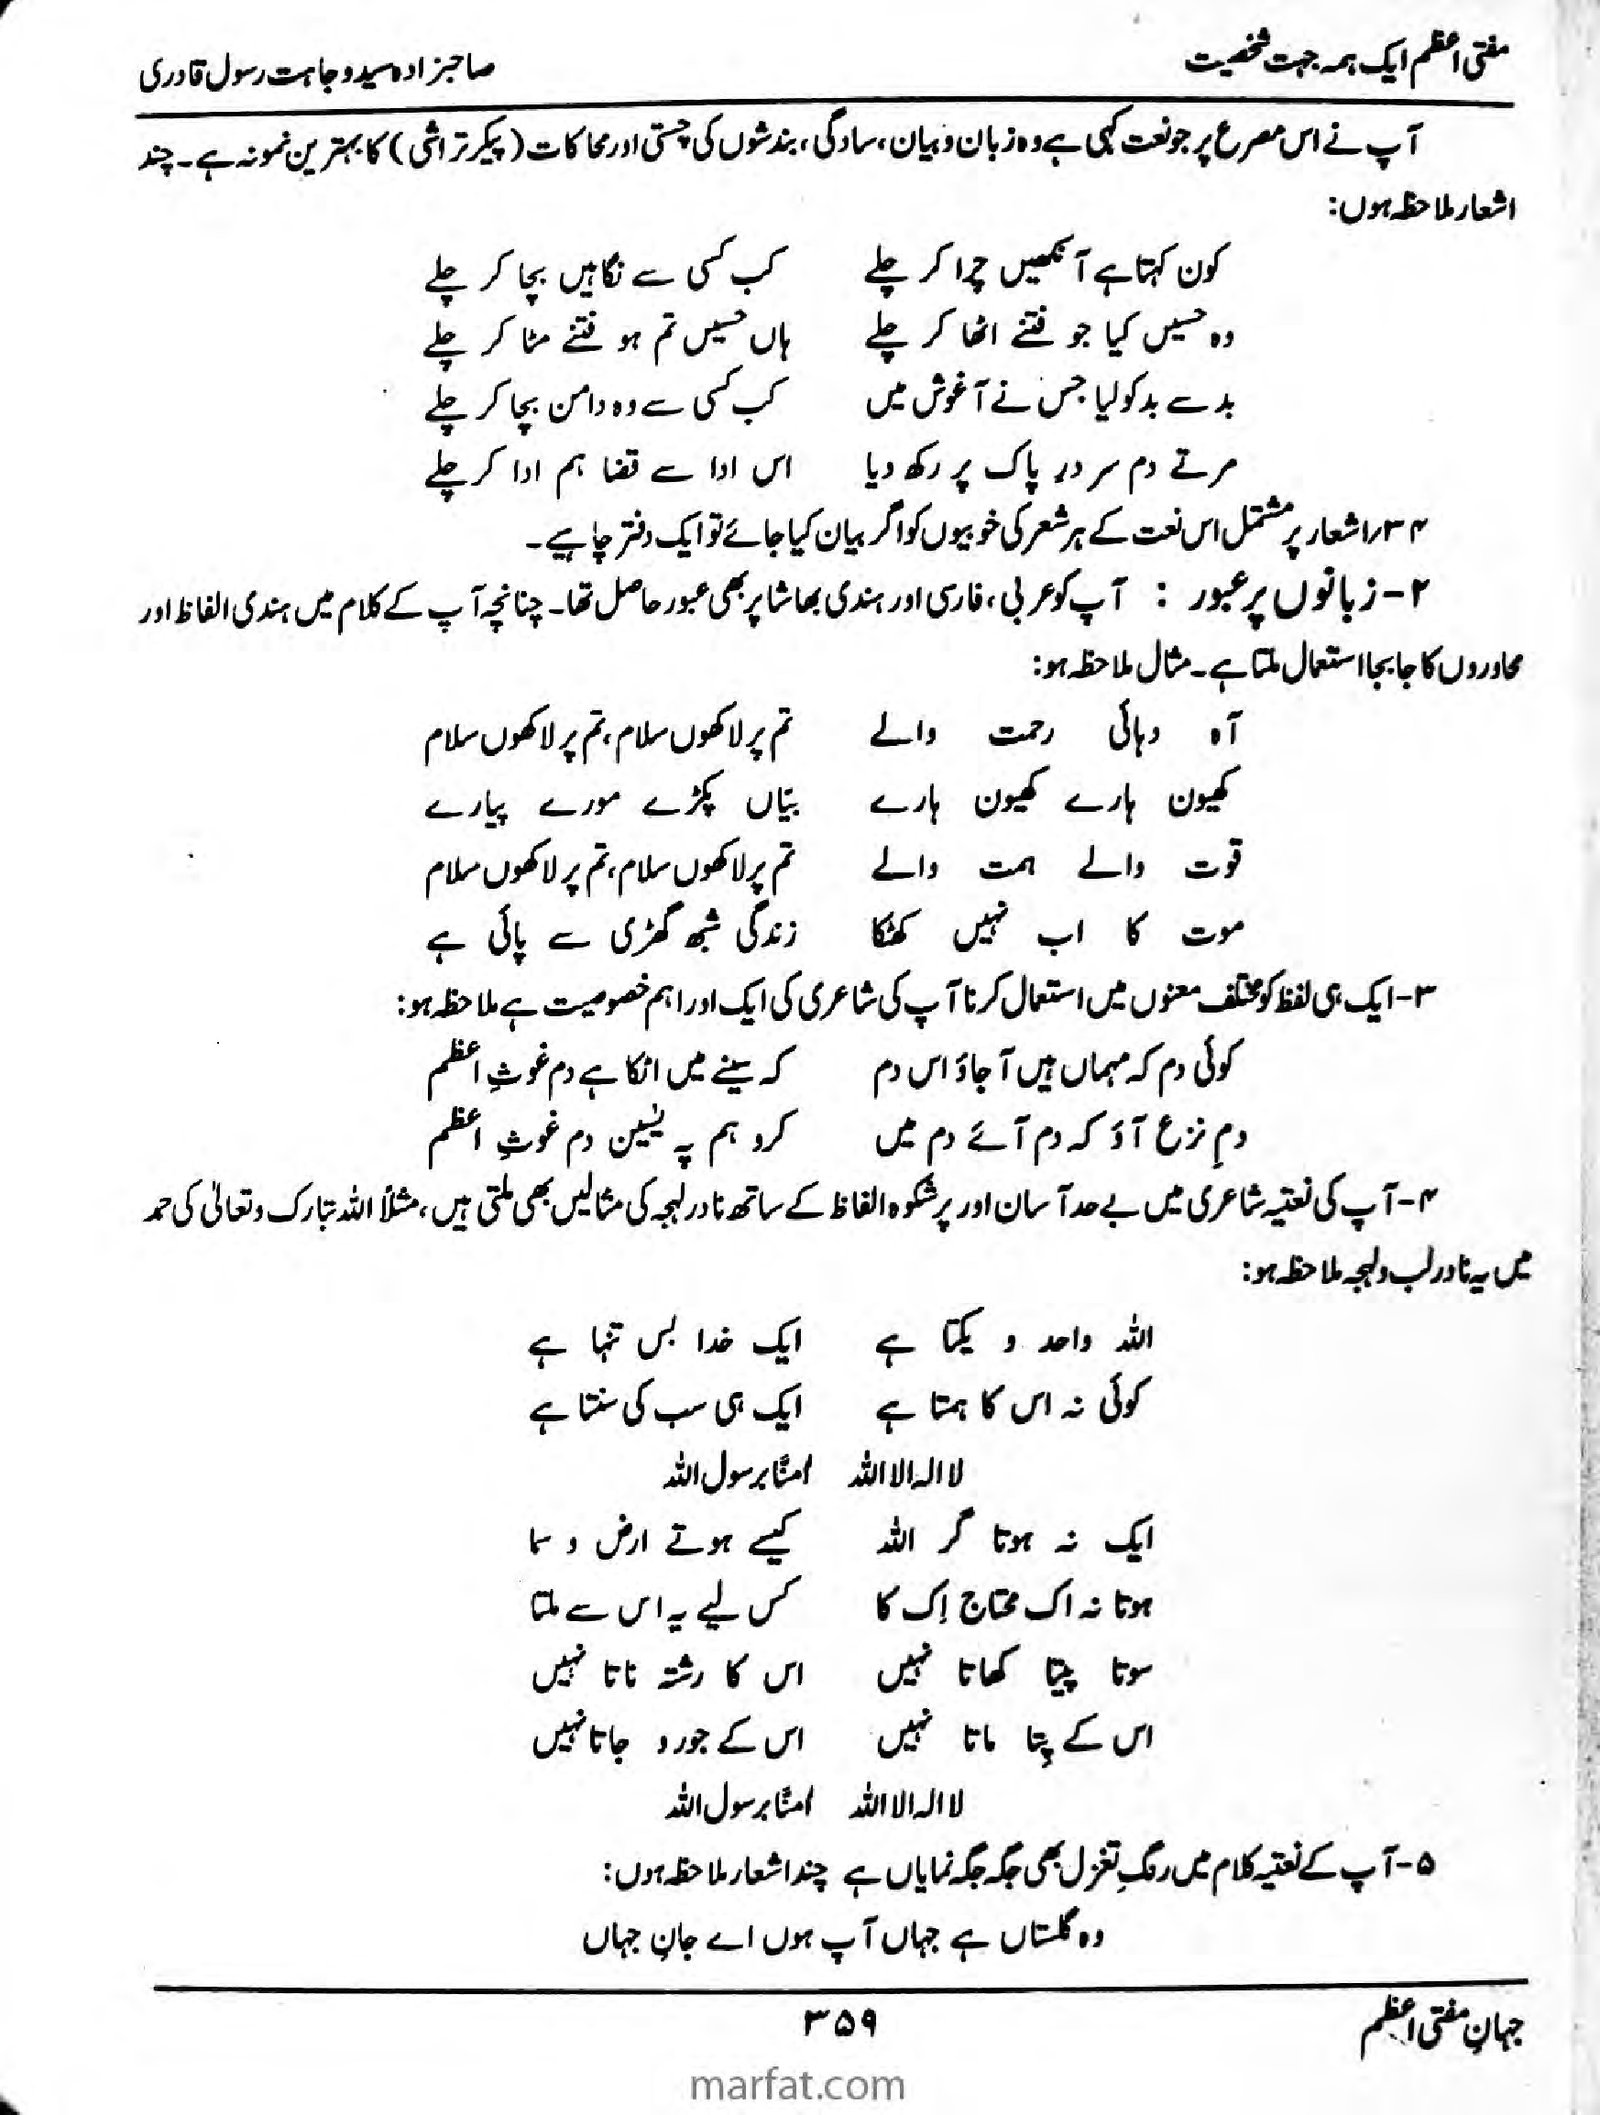 مفتی اعظم ایک ہمہ جہت شخصیت صاحبزادہ سید وجاہت رسول قادری
آپ نے اس مصرع پر جو نعت کہی ہے وہ زبان و بیان، سادگی، بندشوں کی چستی اور محاکات (پیکر تراشی) کا بہترین نمونہ ہے۔ چند
اشعار ملاحظہ ہوں:
کون کہتا ہے آنکھیں چرا کر چلے کب کسی سے نگاہیں بچا کر چلے
وہ حسیں کیا جو فتنے اٹھا کر چلے ہاں حسیں تم ہو فتنے مٹا کر چلے
بد سے بد کو لیا جس نے آغوش میں کب کسی سے وہ دامن بچا کر چلے
مرتے دم سر درِ پاک پر رکھ دیا اس ادا سے قضا ہم ادا کر چلے
۳۴؍اشعار پر مشتمل اس نعت کے ہر شعر کی خوبیوں کو اگر بیان کیا جائے تو ایک دفتر چاہیے۔
۲- زبانوں پر عبور : آپ کو عربی، فارسی اور ہندی بھاشا پر بھی عبور حاصل تھا۔ چنانچہ آپ کے کلام میں ہندی الفاظ اور
محاوروں کا جابجا استعمال ملتا ہے۔ مثال ملاحظہ ہو:
آہ دہائی رحمت والے تم پر لاکھوں سلام، تم پر لاکھوں سلام
کھیون ہارے کھیون ہارے بیّاں پکڑے مورے پیارے
قوت والے ہمت والے تم پر لاکھوں سلام، تم پر لاکھوں سلام
موت کا اب نہیں کھٹکا زندگی شبھ گھڑی سے پائی ہے
۳- ایک ہی لفظ کو مختلف معنوں میں استعمال کرنا آپ کی شاعری کی ایک اور اہم خصوصیت ہے ملاحظہ ہو:
کوئی دم کہ مہماں ہیں آجاؤ اس دم کہ سینے میں اٹکا ہے دم غوثِ اعظم
دمِ نزع آؤ کہ دم آئے دم میں کرو ہم پہ یٰسین دم غوثِ اعظم
۴- آپ کی نعتیہ شاعری میں بے حد آسان اور پرشکوہ الفاظ کے ساتھ نادر لہجہ کی مثالیں بھی ملتی ہیں، مثلاً اللہ تبارک و تعالیٰ کی حمد
میں یہ نادر لب و لہجہ ملاحظہ ہو:
اللہ واحد و یکتا ہے ایک خدا بس تنہا ہے
کوئی نہ اس کا ہمتا ہے ایک ہی سب کی سنتا ہے
لا الہ الا اللہ اٰمنّا برسول اللہ
ایک نہ ہوتا گر اللہ کیسے ہوتے ارض و سما
ہوتا نہ اک محتاج اِک کا کس لیے یہ اس سے ملتا
سوتا پیتا کھاتا نہیں اس کا رشتہ ناتا نہیں
اس کے پِتا ماتا نہیں اس کے جورو جاتا نہیں
لا الہ الا اللہ اٰمنّا برسول اللہ
۵- آپ کے نعتیہ کلام میں رنگِ تغزل بھی جگہ جگہ نمایاں ہے چند اشعار ملاحظہ ہوں:
وہ گلستاں ہے جہاں آپ ہوں اے جانِ جہاں
جہانِ مفتی اعظم ۳۵۹
marfat.com